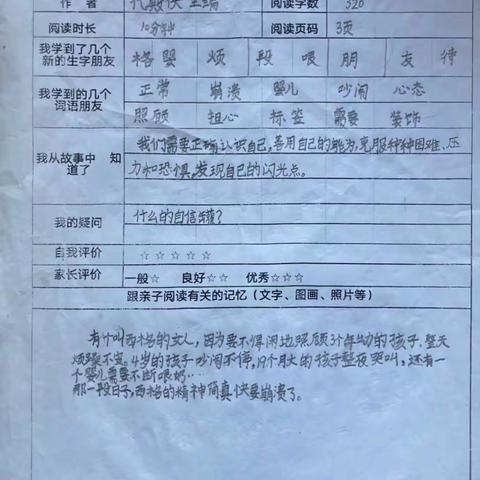 作 者 代顺侠 主编 阅读字数 320
阅读时长 10分钟 阅读页码 3页
我学到了几个 格 婴 烦 段 喂 朋 友 待
新的生字朋友
我学到的几个 正常 崩溃 婴儿 吵闹 心态
词语朋友 照顾 担心 标签 需要 装饰
我们需要正确认识自己,善用自己的能力,克服种种困难、压
我从故事中 知 力和恐惧,发现自己的闪光点。
道了
我的疑问 什么的自信罐?
自我评价 ☆ ☆ ☆ ☆ ☆
家长评价 一般☆ 良好☆☆ 优秀☆☆☆
跟亲子阅读有关的记忆(文字、图画、照片等)
有个叫西格的女人,因为要不停闲地照顾3个年幼的孩子,整天
烦躁不安。4岁的孩子吵闹不停,19个月大的孩子整夜哭叫,还有一
个婴儿需要不断喂奶…
那一段日子,西格的精神简真快要崩溃了。